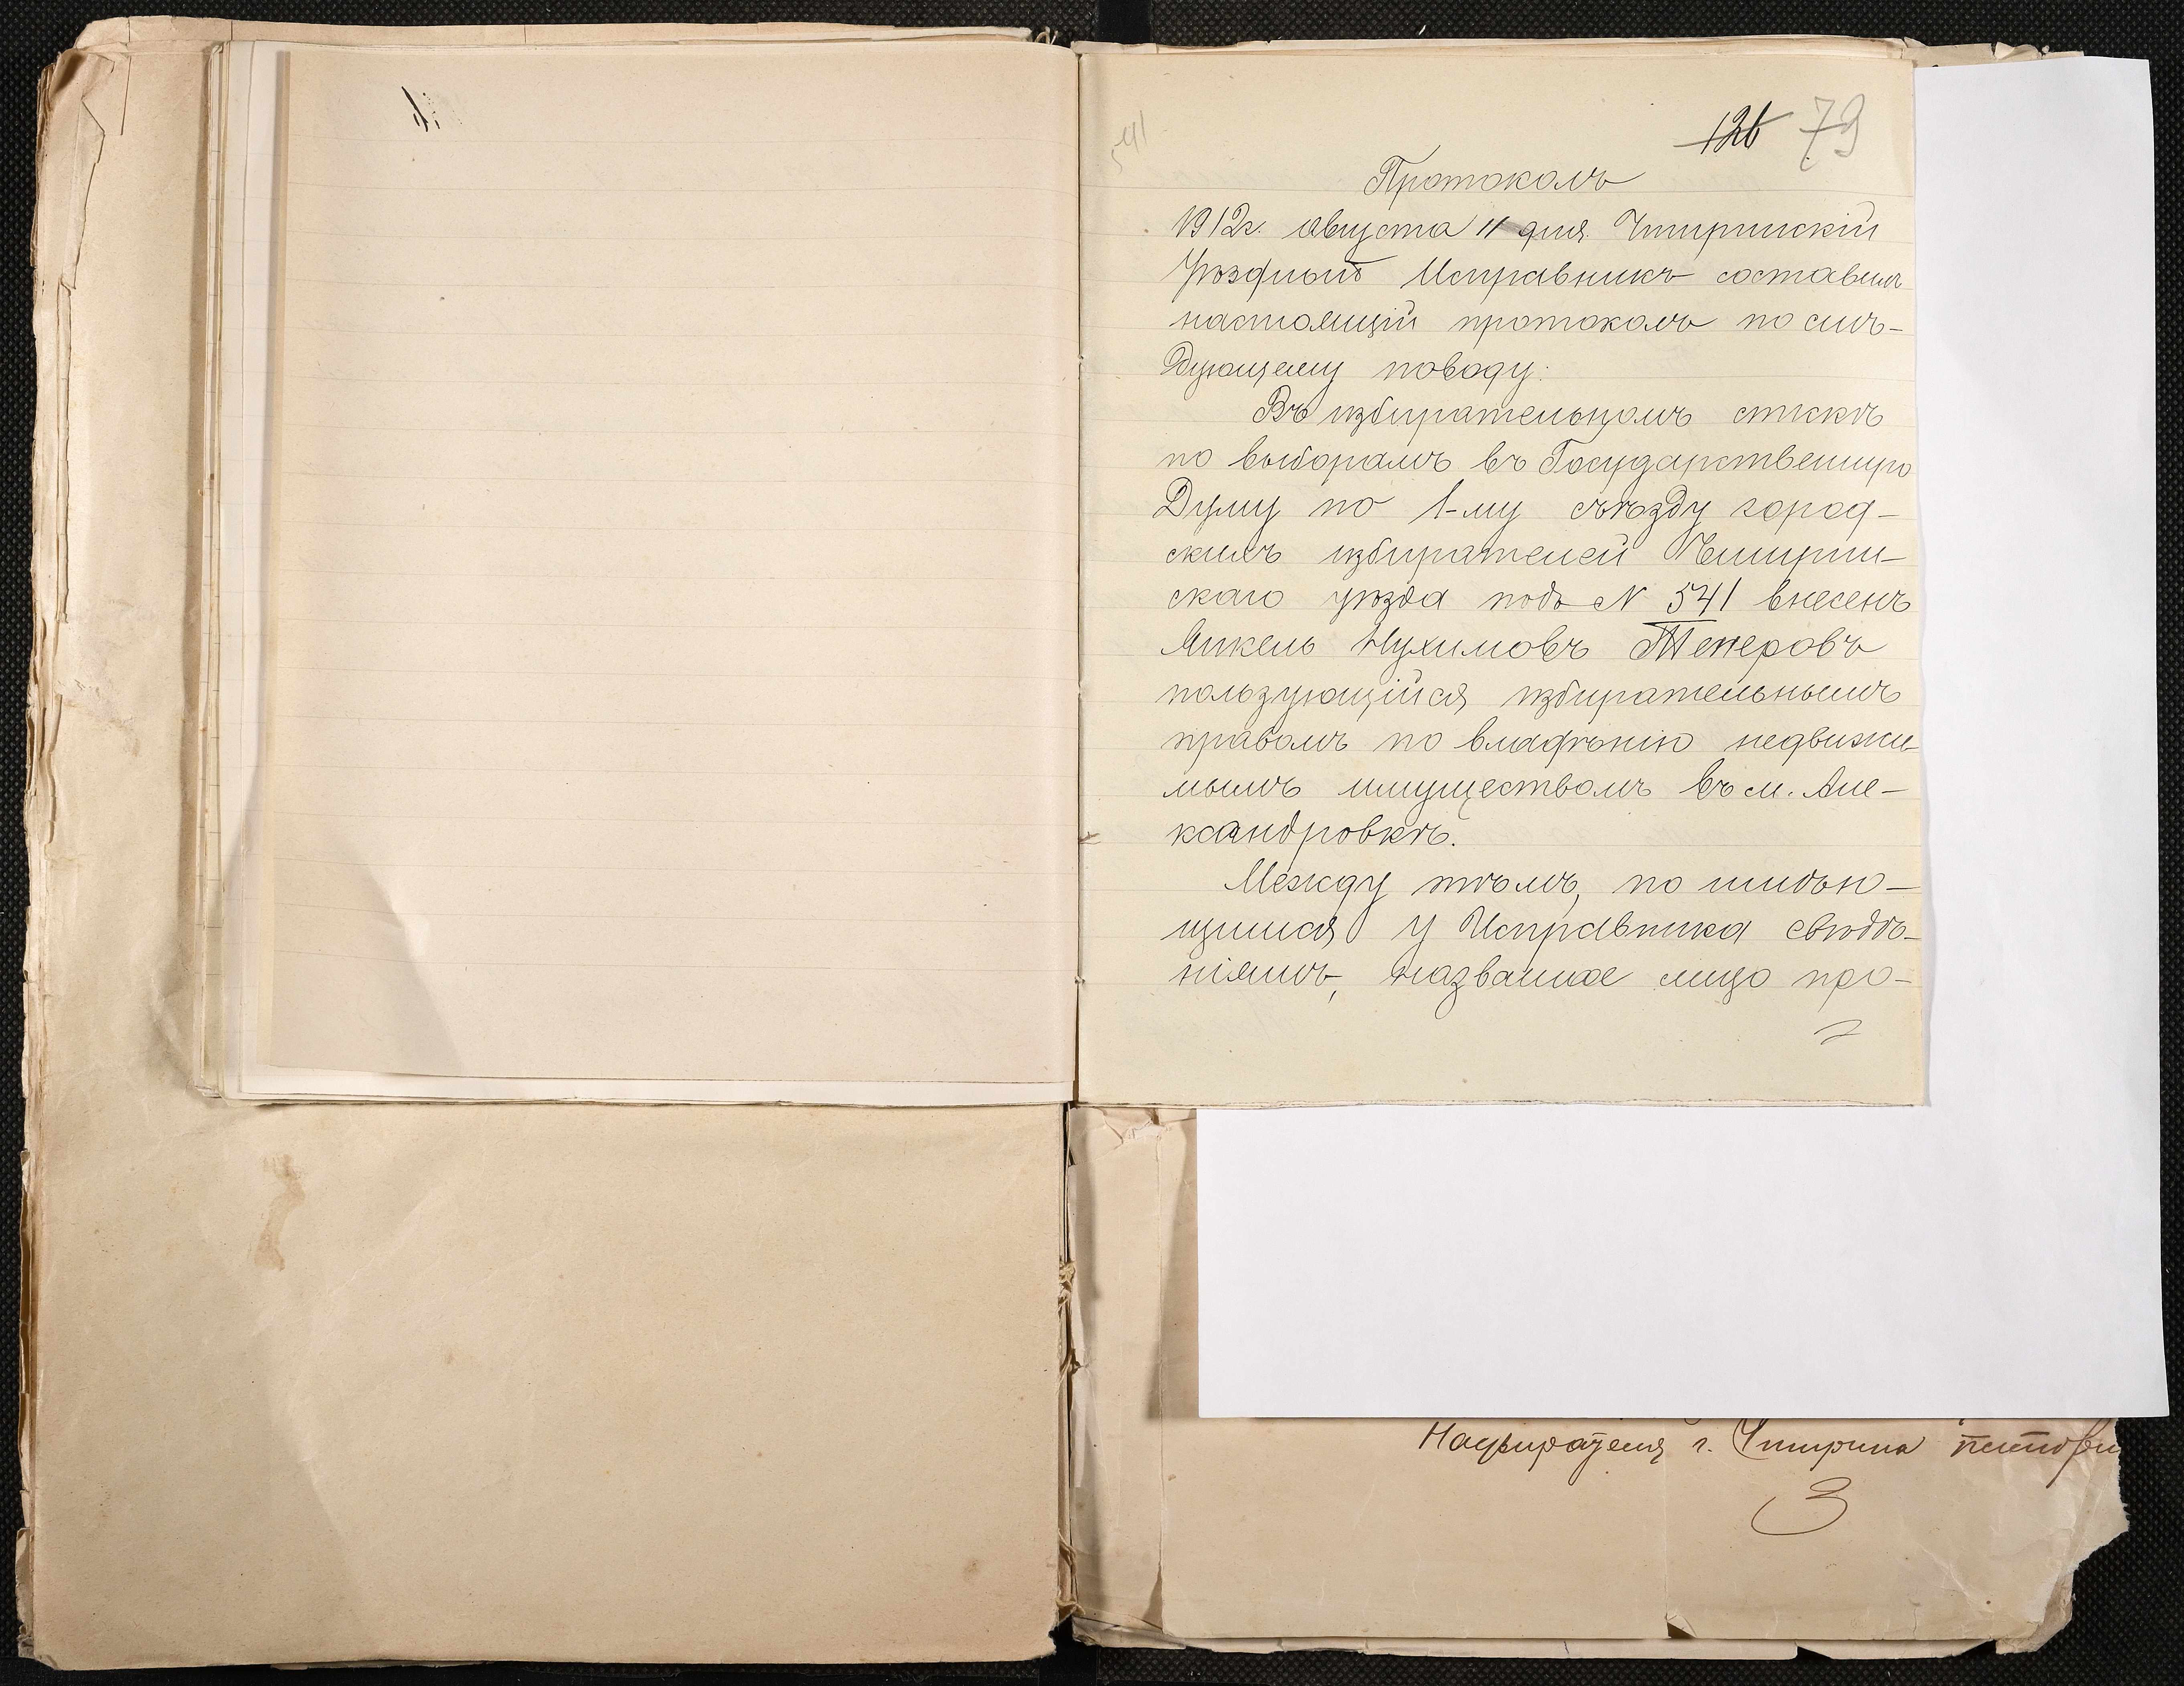 541
126 79
Протоколъ
1912г. августа 11 дня Чигиринскій
Уѣздный Исправникъ составилъ
настоящій протоколъ по слѣ-
дующему поводу:
Въ избирательномъ спискѣ
по выборамъ въ Государственную
Думу по 1-му съѣзду город-
скихъ избирателей Чигирин-
скаго уѣзда подъ № 541 внесенъ
Анкель Нухимовъ Теперовъ
пользующійся избирательнымъ
правомъ по владѣнію недвижи-
мымъ имуществомъ въ м. Але-
ксандровкѣ.
Между тѣмъ, по имѣю-
щимся у Исправника свѣдѣ-
ніямъ, названное лицо про-
г. Чигирина
3